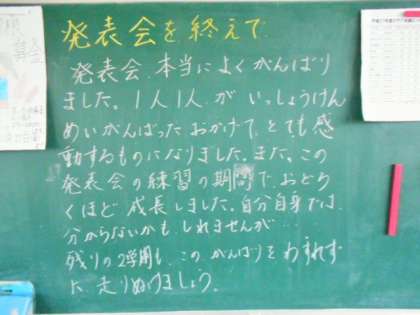 発表会を終えて
発表会、本当によくがんばり
ました。1人1人が いっしょうけん
めいがんばったおかげで、とても感
動するものになりました。また、この
発表会の練習の期間で、おどろ
くほど成長しました。自分自身では、
分からないかもしれませんが…
残りの2学期も、このがんばりをわすれず
に走りぬけましょう。